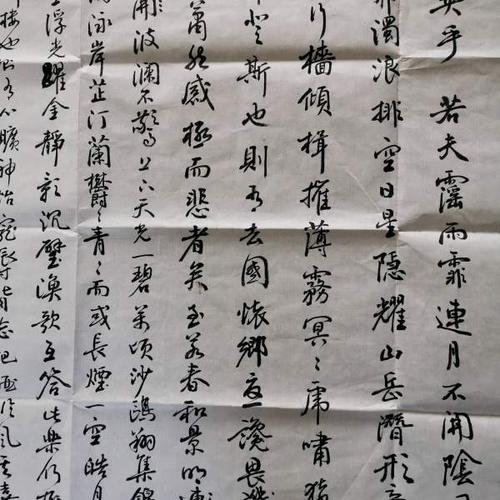 異乎 若夫霪雨霏連月不開陰
濁浪排空日星隱耀山岳潛形
行檣傾楫摧薄霧冥〻虎嘯猿
登斯也則有去國懷鄉憂讒畏譏
蕭然感極而悲者矣至若春和景明
波瀾不驚上下天光一碧萬頃沙鷗翔集錦
泳岸芷汀蘭鬱〻青〻而或長煙一空皓月
浮光耀金靜影沉璧漁歌互答此樂何極
樓也則有心曠神怡寵辱皆忘把酒臨風其喜